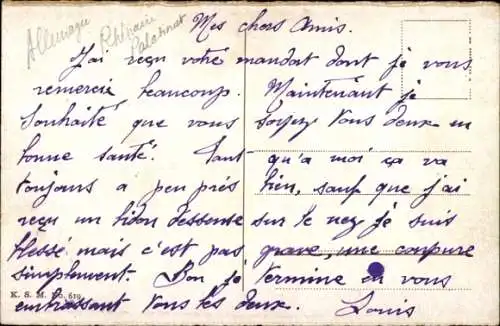 Allemagne
Rhénanie
Palatinat
Mes chers Amis.
J'ai reçu votre mandat dont je vous
remercie beaucoup. Maintenant je
souhaité que vous soyez vous deux en
bonne santé. Tant qu'a moi ça va
toujours a peu prés bien, sauf que j'ai
reçu un bidon dessense sur le nez je suis
blessé mais c'est pas grave, une coupure
simplement. Bon je termine en vous
K. S. M. No. 519
embrassant vous les deux. Louis